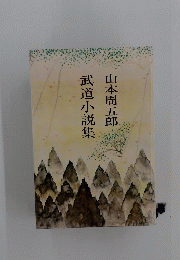 山本周五郎
武道小説集